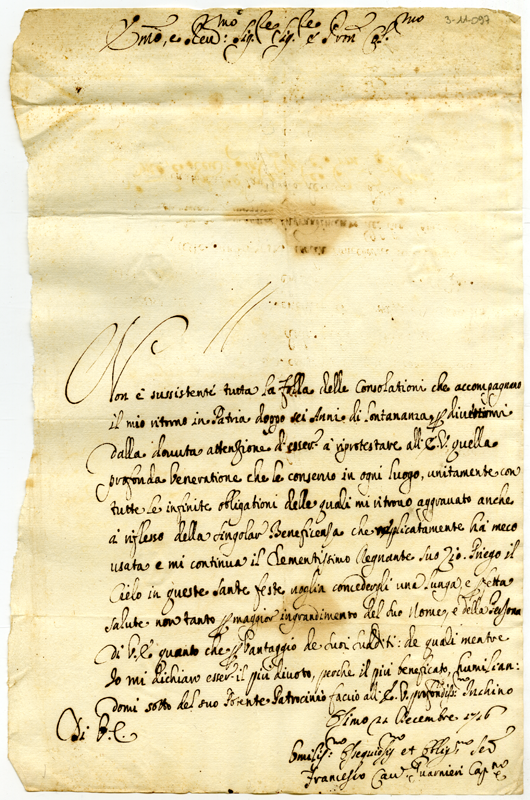 3-11-097
Emo, e Revmo: Sigre Sigre e Prone Colmo
Non è sussistente tutta la folla delle Consolationi che accompagnano
il mio ritorno in Patria doppo sei Anni di lontananza divertirmi
dalla dovuta attenzione d'esser à riprotestare all'E.V. quella
profonda Veneratione che le conservo in ogni luogo, unitamente con
tutte le infinite obligationi delle quali mi ritrovo aggravato anche
à riflesso della singolar Beneficenza che replicatamente hà meco
usata e mi continua il Clementissimo Regnante suo Zio. Priego il
Cielo in queste sante feste voglia concedergli una lunga, e perfetta
salute non tanto p maggior ingrandimento del suo Nome, e della Persona
di V.E. quanto che p Vantaggio de suoi sudditi: de quali mentre
Io mi dichiaro esser il più divoto, perche il più beneficato, humilian:
domi sotto del suo Potente Patrocinio faccio all'E.V. profondiss. Inchino
Osimo 24 Decembre 1716
Di V.E.
Umiliss. Ossequiosis et Oblig. Ser
Francesco Cav. Guarnieri Cap.